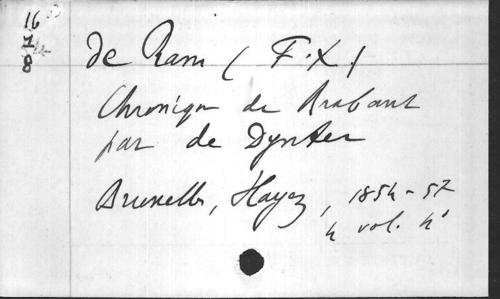 16
7
8
de Ram (F.X.)
Chronique de Brabant
par de Dynter
Bruxelles, Hayez, 1854-57
4 vol. 4°